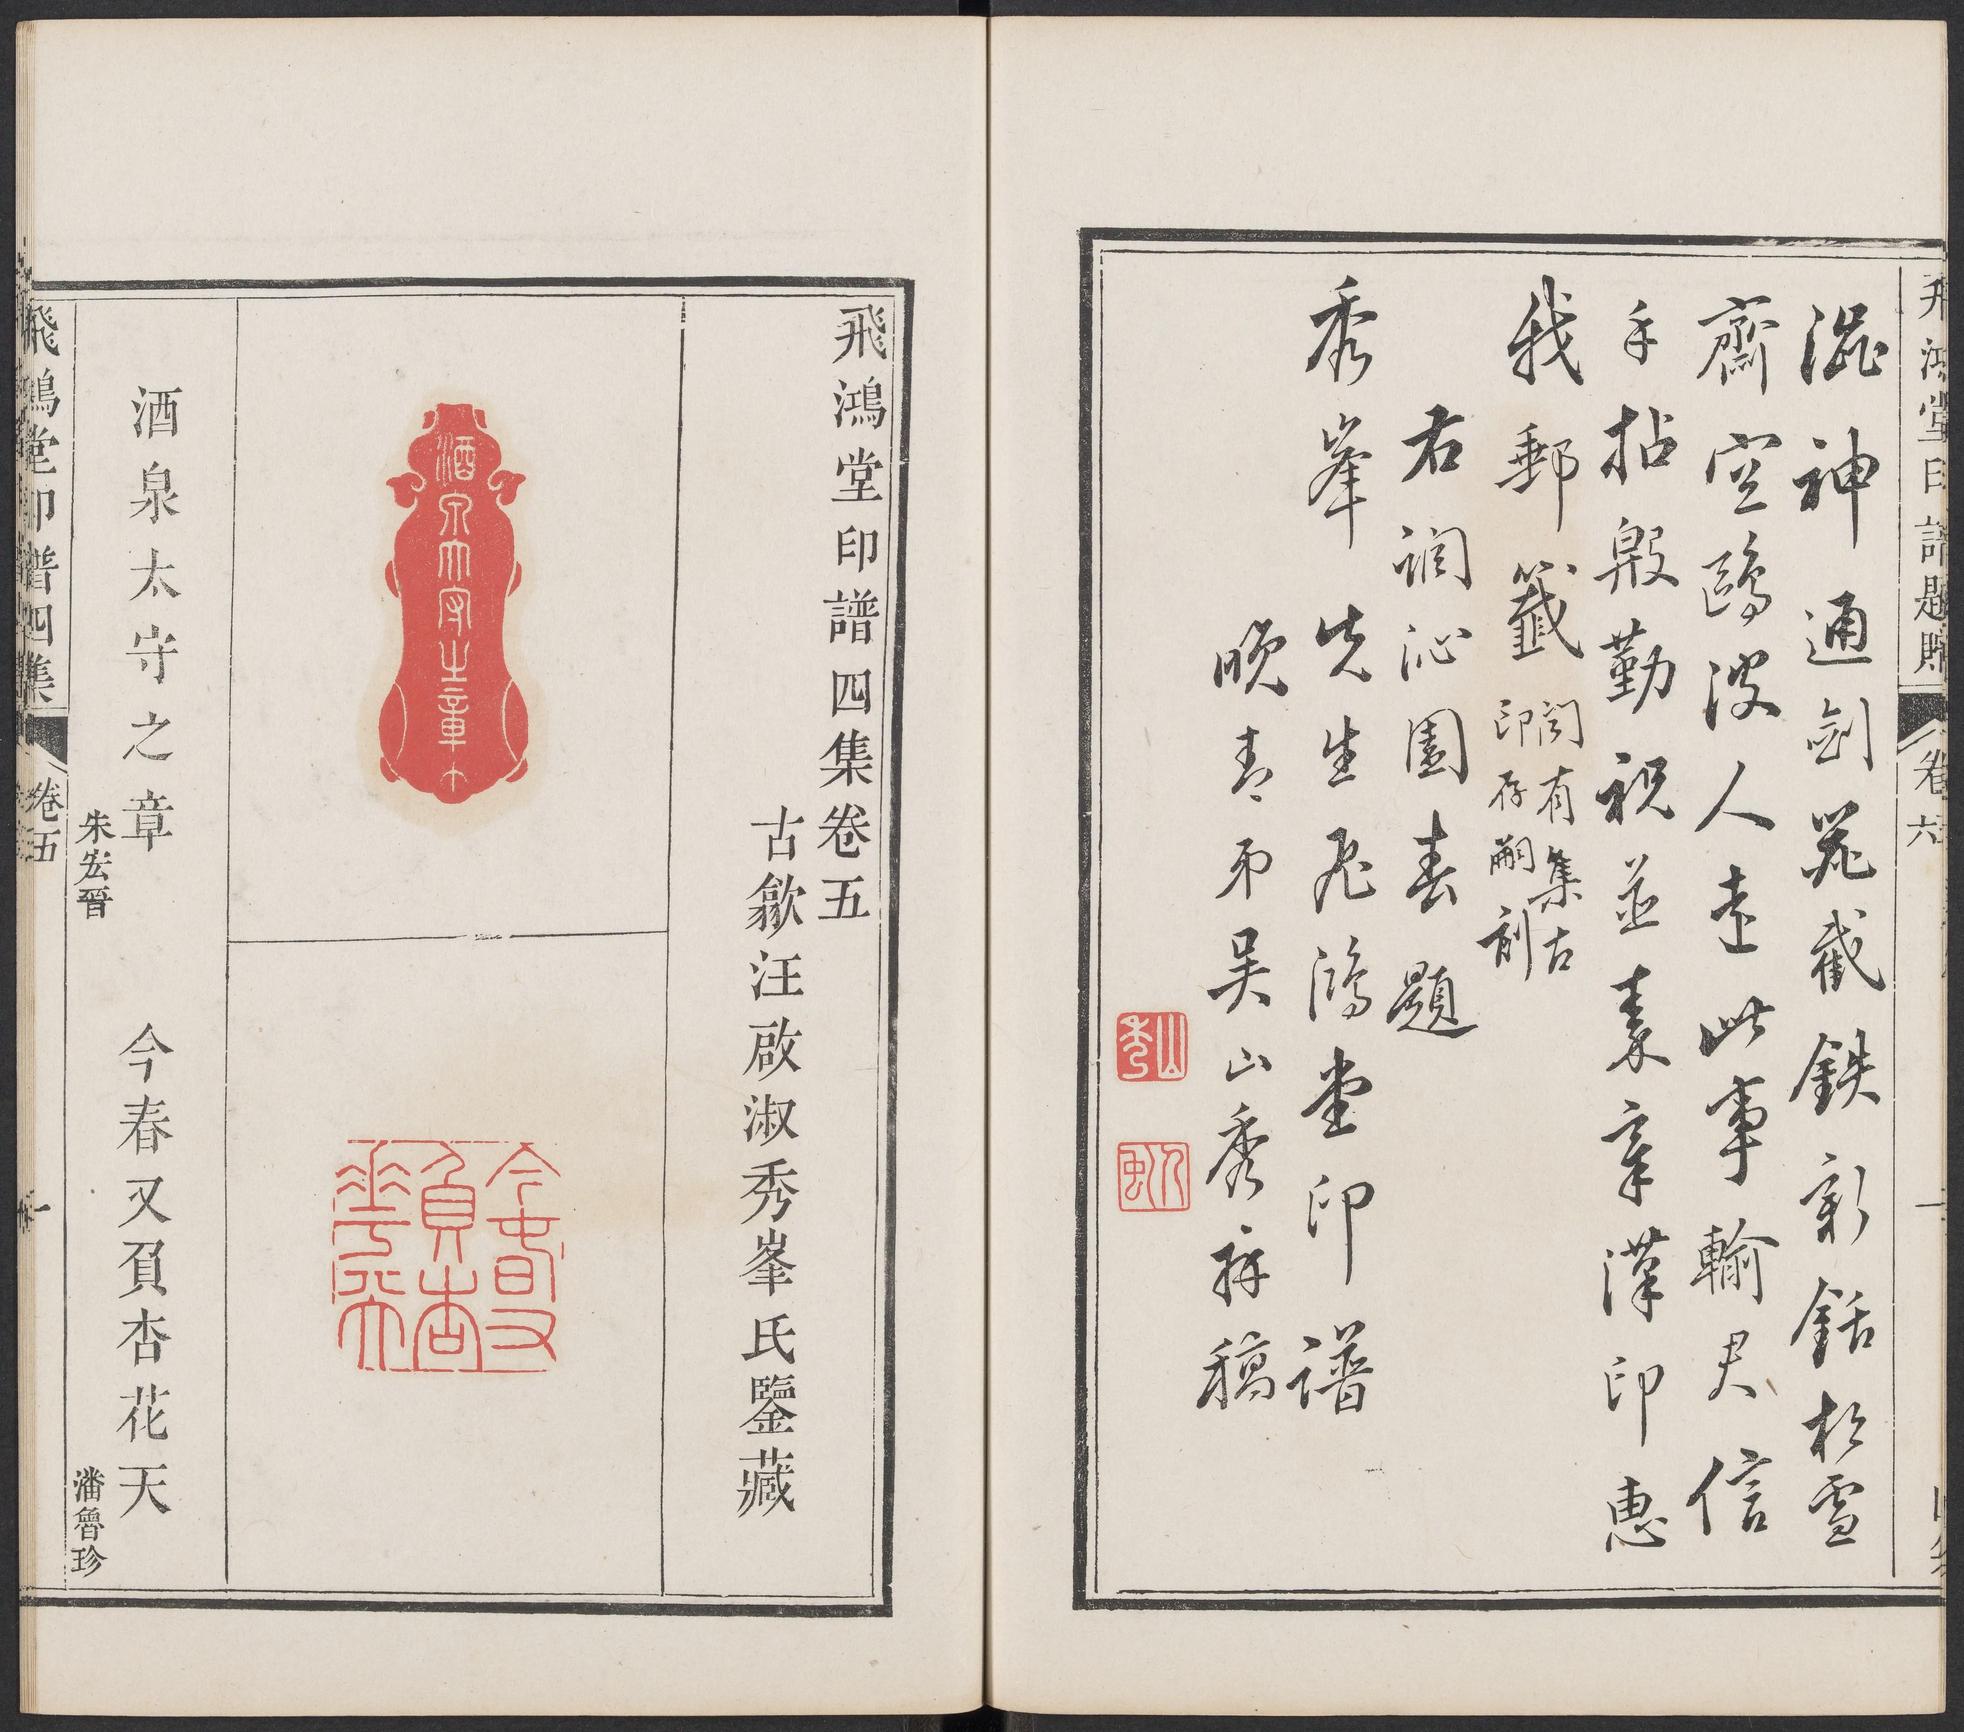 飛鴻堂印譜題贈
卷六
澀神通劍器截鉄新銛松雪
齋空鷗波人遠此事輸君信
手拈殷勤祝並秦章漢印惠
我郵籤
閣有集古
印存嗣刻
右調沁園春題
秀峯先生飛鴻堂印譜
晚青弟吴山秀拜稿
山秀
人虹
飛鴻堂印譜四集卷五
古歙汪啟淑秀峯氏鑒藏
酒泉太守之章
今春又負杏花天
酒泉太守之章
朱宏晉
今春又負杏花天
潘魯珍
飛鴻堂印譜四集
卷五
一